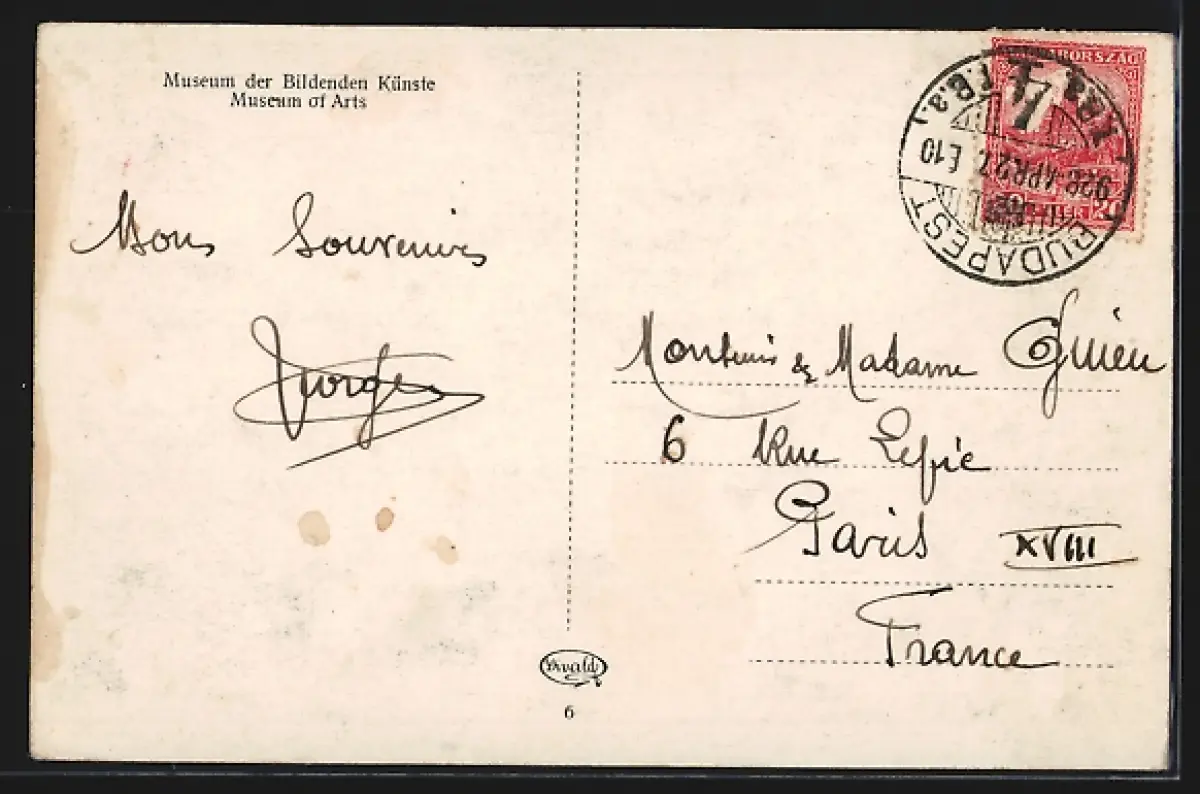 Museum der Bildenden Künste
Museum of Arts
Bons Souvenirs
MAGYARORSZÁG
20
BUDAPEST
928 APR 27 E10
Monsieur & Madame
6 Rue Lepic
Paris XVIII
France
6